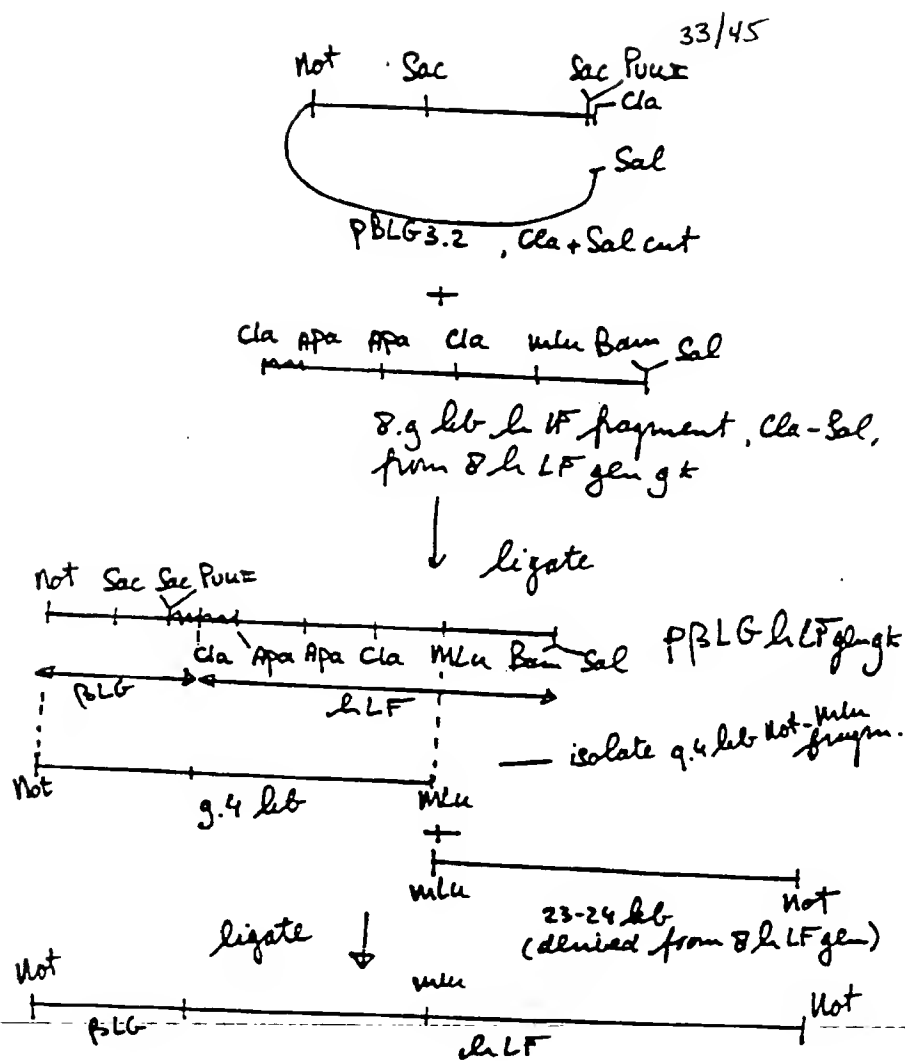 33/45
Not Sac Sac PvuII
Cla
Sal
pBLG3.2, Cla + Sal cut
+
Cla Apa Apa Cla Mlu Bam Sal
8.9 kb hLF fragment, Cla-Sal,
from 8hLF gen gk
ligate
Not Sac Sac PvuII
Cla Apa Apa Cla Mlu Bam Sal pβLG hLF gen gk
βLG hLF
isolate 9.4 kb Not-Mlu
fragm.
Not 9.4 kb Mlu
+
Mlu Not
23-24 kb
(derived from 8hLF gen)
ligate
Not Mlu Not
βLG hLF